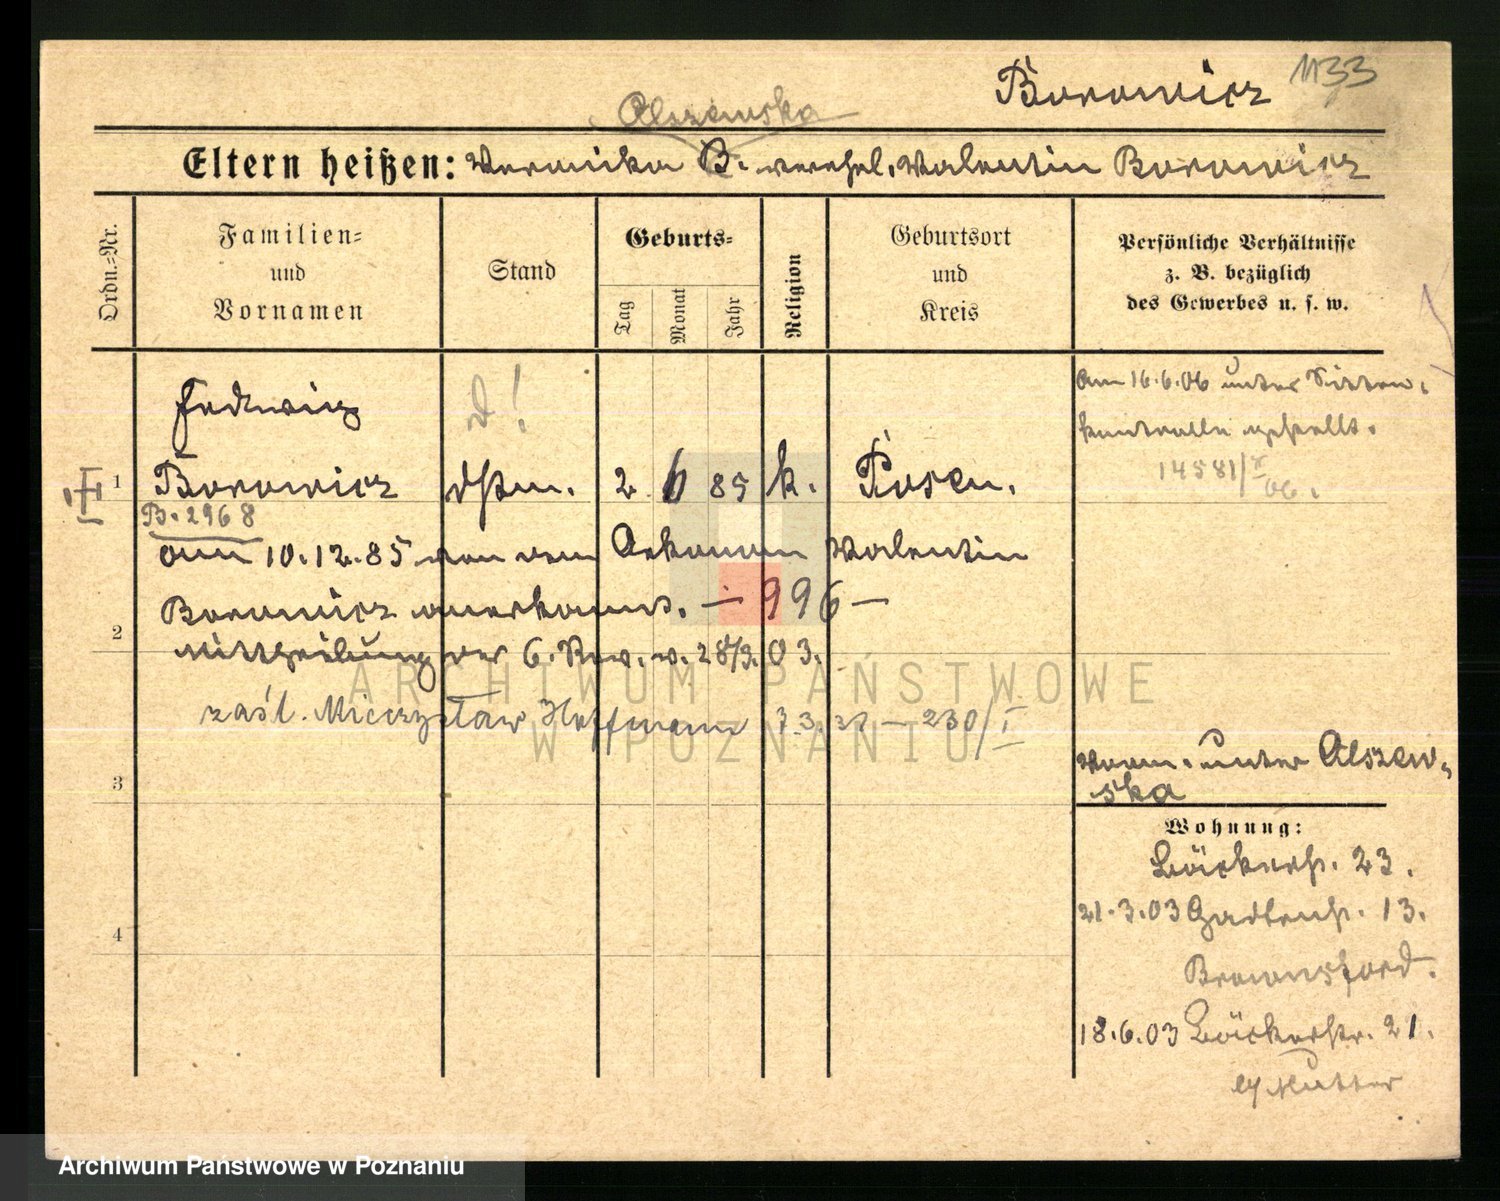 Borowicz 1133
Olszewska
Eltern heißen: Veronika B. verehel. Valentin Borowicz
Ordn.-Nr.
Familien-
und
Vornamen
Stand
Geburts-
Tag
Monat
Jahr
Religion
Geburtsort
und
Kreis
Persönliche Verhältnisse
z. B. bezüglich
des Gewerbes u. s. w.
Hedwig
d!
am 16.6.06 unter Sitten-
kontrolle gestellt.
14581/X 06.
1 Borowicz 2 6 85 k. Posen.
B. 2968
am 10.12.85 von dem Oekonom Valentin
Borowicz anerkannt. — 996 —
2
Mittheilung der 6. Rev. v. 28/3. 03.
zaśl. Mieczysław Hoffmann
230/I
3
4
vorm. unter Olszew-
ska
Wohnung:
Bäckerstr. 23.
21.3.03 Gartenstr. 13.
18.6.03 Bäckerstr. 21.
b/ Mutter
ARCHIWUM PAŃSTWOWE
W POZNANIU
Archiwum Państwowe w Poznaniu